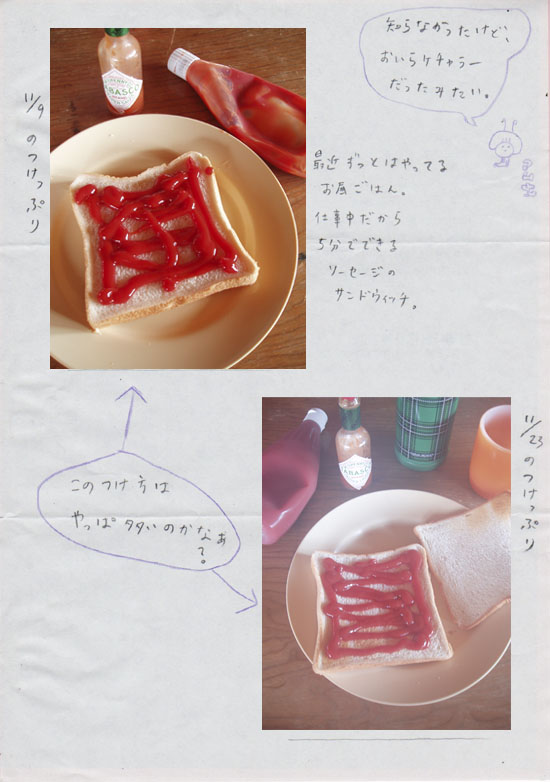 知らなかったけど、
おいらケチャラー
だったみたい。
11/9 のつけっぷり
最近 ずっとはやってる
お昼ごはん。
仕事中だから
5分でできる
ソーセージの
サンドウィッチ。
このつけ方は
やっぱ多いのかなぁ
て。
11/23 のつけっぷり
TABASCO
TABASCO